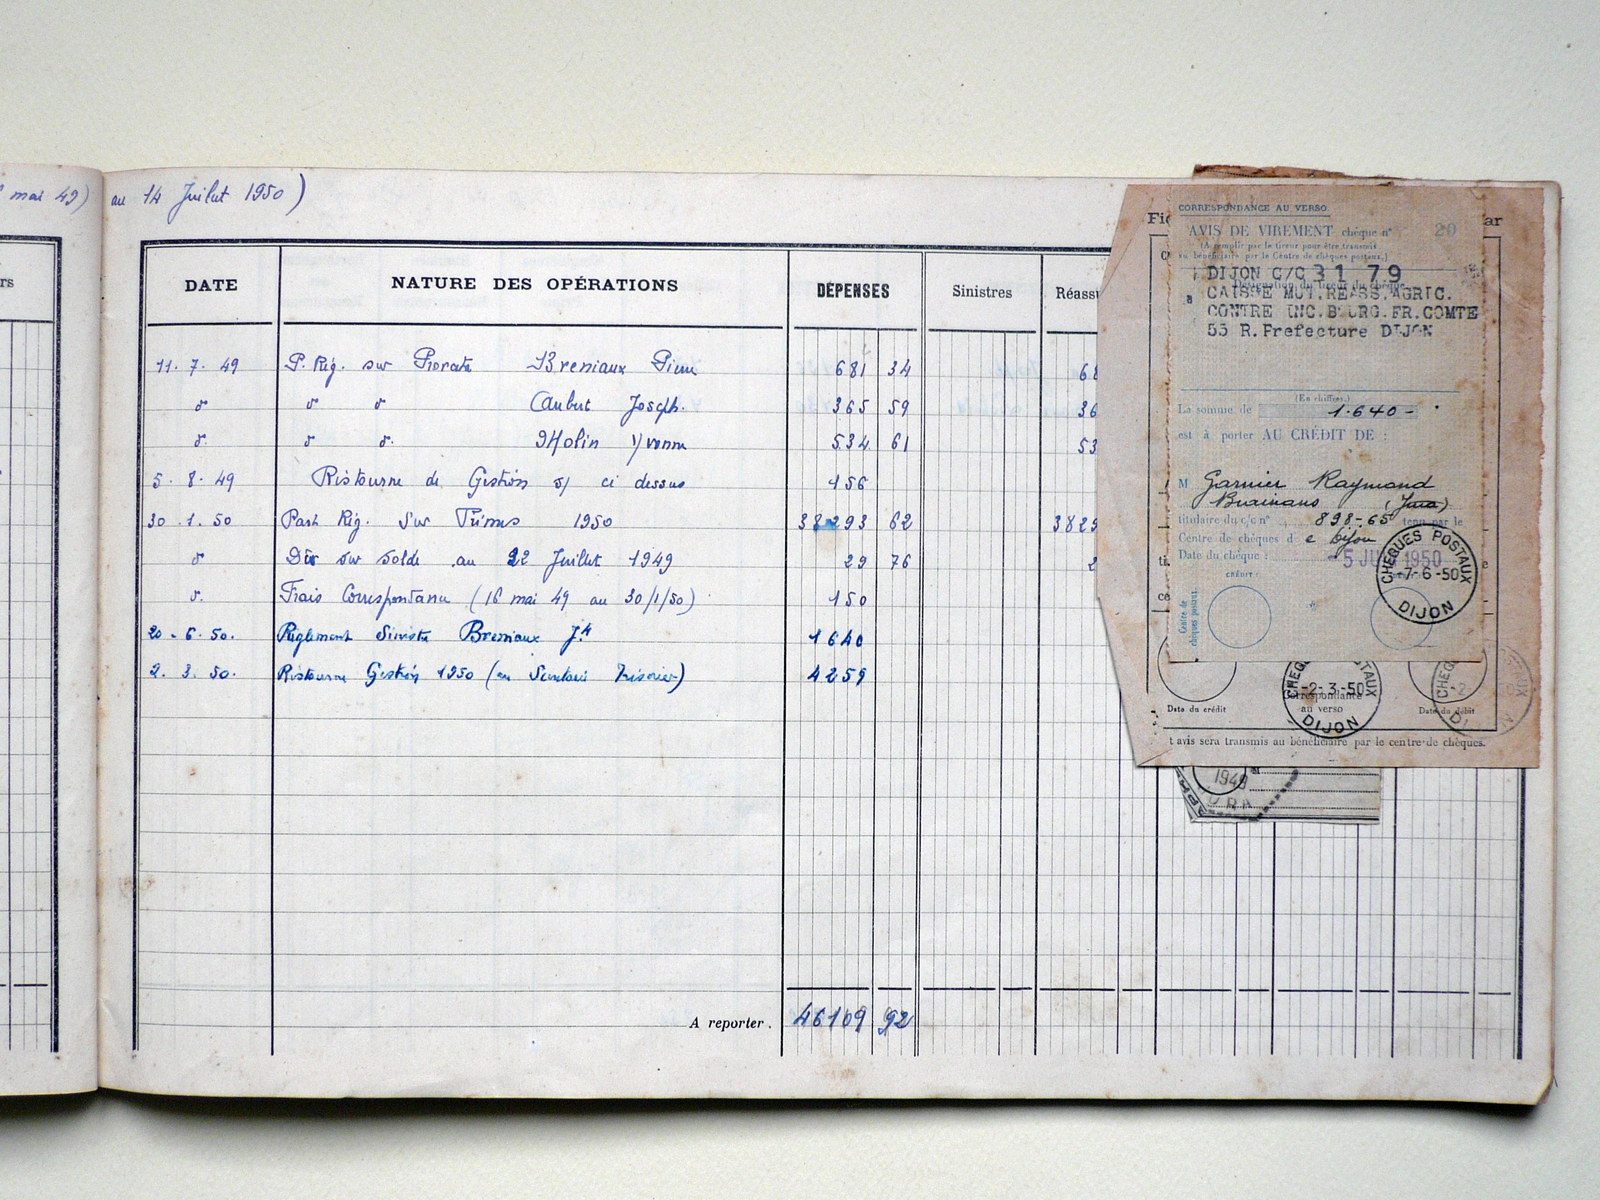 mai 49) au 14 Juillet 1950 )
rs
DATE NATURE DES OPÉRATIONS DÉPENSES Sinistres Réass
11. 7. 49 P. Rég. sur Prorata Breniaux Pierre 681 34 68
d° d° d° Caubet Joseph. 365 59 36
d° d° d° Molin Yvonne 534 61 53
5. 8. 49 Ristourne de Gestion s/ ci dessus 156
30. 1. 50 Part Rég. Sur Primes 1950 38293 62 3829
d° sur solde au 22 Juillet 1949 29 76 2
d° Frais Correspondance (16 mai 49 au 30/1/50) 150
20. 6. 50. Règlement Sinistre Breniaux Jh 1640
2. 3. 50. Ristourne Gestion 1950 (au Secrétaire Trésorier) 4259
A reporter. 46109 92
Fic ar
CORRESPONDANCE AU VERSO
AVIS DE VIREMENT chèque n° 20
(A remplir par le tireur pour être transmis
au bénéficiaire par le Centre de chèques postaux.)
DIJON C/C 31 79
Désignation du tireur du chèque
a CAISSE MUT.REASS.AGRIC.
CONTRE INC.BOURG.FR.COMTE
55 R.Prefecture DIJON
(En chiffres.)
La somme de 1.640 -
est à porter AU CRÉDIT DE :
M Garnier Raymond
Brainans (Jura)
titulaire du c/c n° 898-65 tenu par le
Centre de chèques de Dijon
Date du chèque : -5 JUN 1950
CRÉDIT :
CHEQUES POSTAUX
-7-6-50
DIJON
Centre de
chèques postaux.
CHEQUES POSTAUX
-2-3-50
DIJON
Correspondance
au verso
Date du crédit Date du débit
t avis sera transmis au bénéficiaire par le centre de chèques.
1949
JURA